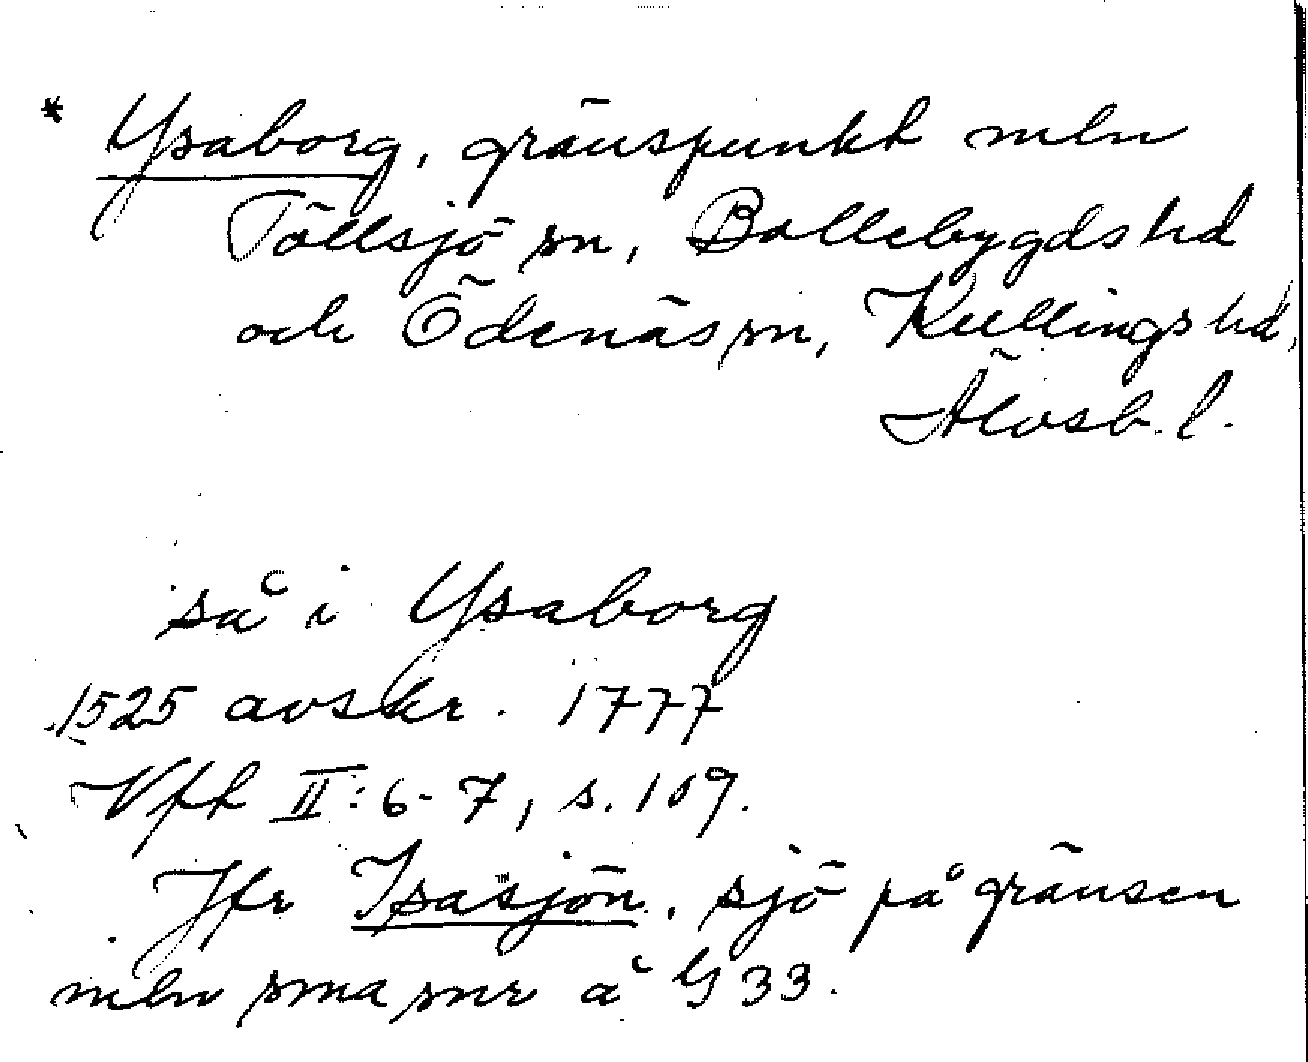 * Ysaborg, gränspunkt mln
Töllsjö sn, Bollebygds hd
och Ödenäs sn, Kullings hd,
Älvsb. l.
så i Ysaborg
1525 avskr. 1777
Vfh II: 6-7, s. 109.
Jfr Isasjön, sjö på gränsen
mln sma snr å G 33.